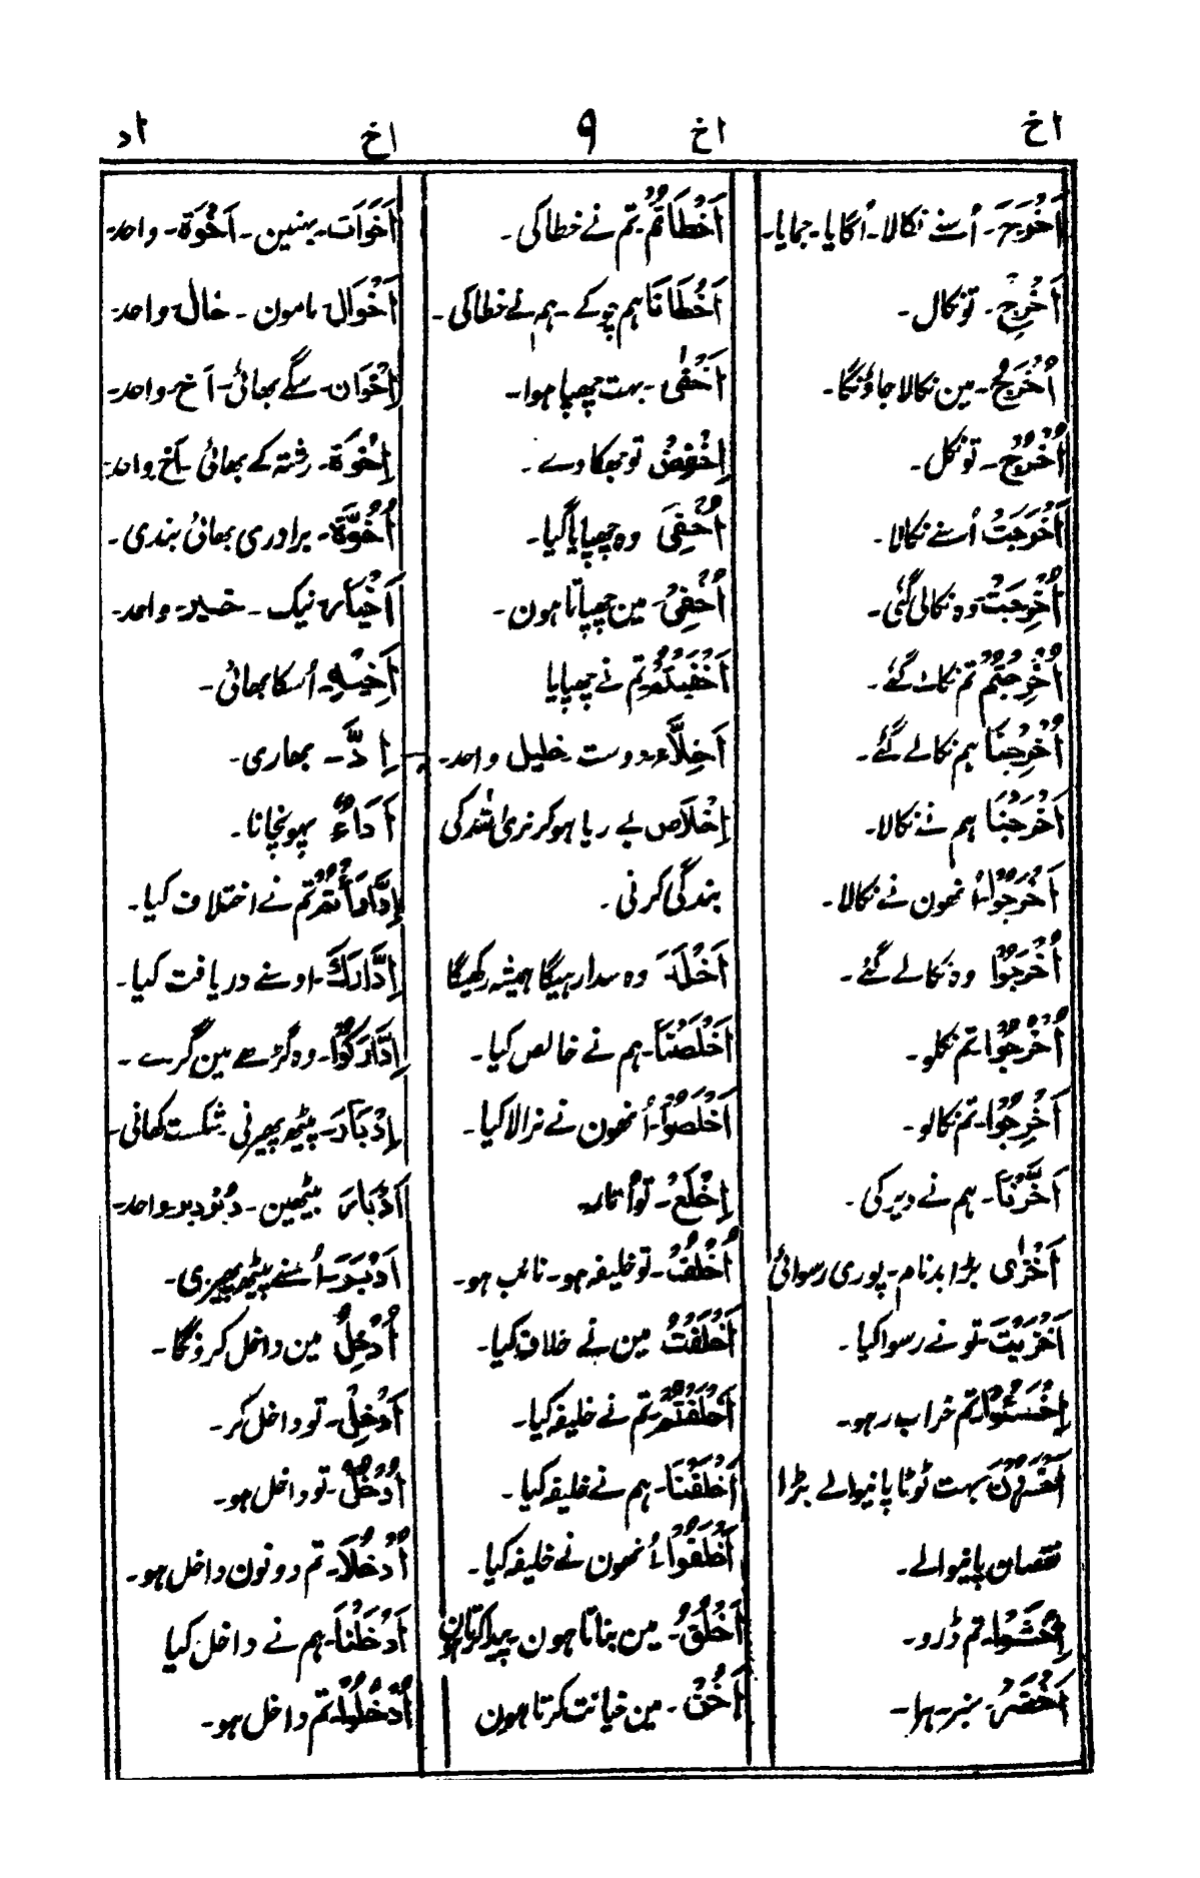 اخ
اخ
٩
اخ
اد
اَخْرَجَ۔ اُسنے نکالا۔ اُگایا۔ جمایا۔
اَخْرِجْ۔ تو نکال۔
اُخْرَجُ۔ مین نکالا جاؤنگا۔
اُخْرُجْ۔ تو نکل۔
اَخْرَجَتْ اُسنے نکالا۔
اُخْرِجَتْ۔ وہ نکالی گئی۔
اُخْرِجْتُمْ تم نکالے گئے۔
اُخْرِجْنَا ہم نکالے گئے۔
اَخْرَجْنَا ہم نے نکالا۔
اَخْرَجُوْا۔ اُنھون نے نکالا۔
اُخْرِجُوْا وہ نکالے گئے۔
اُخْرُجُوْا تم نکلو۔
اَخْرِجُوْا۔ تم نکالو۔
اَخَّرْنَا۔ ہم نے دیر کی۔
اَخْزٰى بڑا بدنام۔ پوری رسوائی
اَخْزَيْتَ۔ تو نے رسوا کیا۔
اِخْسَئُوْا تم خراب رہو۔
اَخْسَرُوْنَ بہت ٹوٹا پانیوالے بڑا
نقصان پانیوالے۔
اِخْشَوْا۔ تم ڈرو۔
اَخْضَرُ۔ سبز۔ ہرا۔
اَخْطَاْتُمْ۔ تم نے خطا کی۔
اَخْطَاْنَا ہم چوکے۔ ہم نے خطا کی۔
اَخْفٰى۔ بہت چھپا ہوا۔
اِخْفِضْ تو جھکا دے۔
اُخْفِيَ وہ چھپایا گیا۔
اُخْفِيْ۔ مین چھپاتا ہون۔
اَخْفَيْتُمْ تم نے چھپایا
اَخِلَّاء۔ دوست۔ خلیل واحد۔
اِخْلَاص بے ریا ہو کر نری اللہ کی
بندگی کرنی۔
اَخْلَدَ وہ سدا رہیگا ہمیشہ رکھیگا
اَخْلَصْنَا۔ ہم نے خالص کیا۔
اَخْلَصُوْا۔ اُنھون نے نرالا کیا۔
اِخْلَعْ۔ تو اُتار۔
اُخْلُفْ۔ تو خلیفہ ہو۔ نائب ہو۔
اَخْلَفْتُ مین نے خلاف کیا۔
اَخْلَفْتُمْ۔ تم نے خلیفہ کیا۔
اَخْلَفْنَا۔ ہم نے خلیفہ کیا۔
اَخْلَفُوْا۔ اُنھون نے خلیفہ کیا۔
اَخْلُقُ۔ مین بناتا ہون۔ پیدا کرتا ہون
اَخُنْ۔ مین خیانت کرتا ہون
اَخَوَات۔ بہنین۔ اَخُوَة۔ واحد۔
اَخْوَال۔ مامون۔ خال۔ واحد۔
اِخْوَان۔ سگے بھائی۔ اَخ۔ واحد۔
اِخْوَة۔ رشتہ کے بھائی۔ اَخ واحد۔
اُخُوَّة۔ برادری بھائی بندی۔
اَخْيَار نیک۔ خیر۔ واحد۔
اَخِيْهِ۔ اُسکا بھائی۔
اِدّ۔ بھاری۔
اَدَاءٌ پہونچانا۔
اِدَّارَأْتُمْ تم نے اختلاف کیا۔
اِدَّارَكَ۔ اوسنے دریافت کیا۔
اِدَّارَكُوْا۔ وہ گڑھے مین گرے۔
اِدْبَارَ۔ پیٹھ پھیرنی۔ شکست کھانی۔
اَدْبَار بیٹھین۔ دُبُر واحد۔
اَدْبَرَ۔ اُسنے پیٹھ پھیری۔
اُدْخِلُ مین داخل کرونگا۔
اَدْخِلْ۔ تو داخل کر۔
اُدْخُلْ۔ تو داخل ہو۔
اُدْخُلَا۔ تم دونون داخل ہو۔
اَدْخَلْنَا۔ ہم نے داخل کیا
اُدْخُلُوْا تم داخل ہو۔